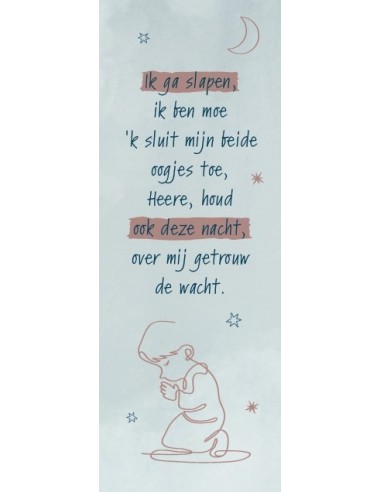 Ik ga slapen,
ik ben moe
'k sluit mijn beide
oogjes toe,
Heere, houd
ook deze nacht,
over mij getrouw
de wacht.